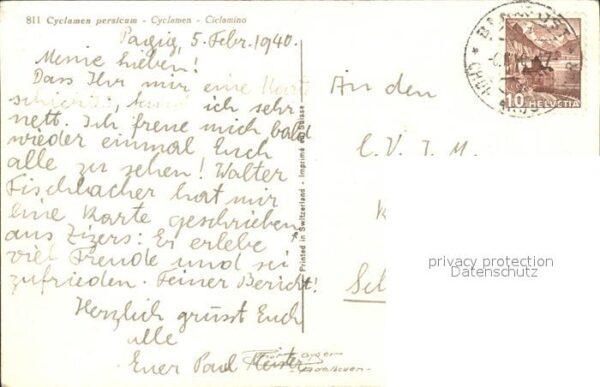 811 Cyclamen persicum - Cyclamen - Ciclamino
5. Febr. 1940.
Meine lieben!
Dass Ihr mir eine Karte
schickt, fand ich sehr
nett. Ich freue mich bald
wieder einmal Euch
alle zu sehen! Walter
Fischbacher hat mir
eine Karte geschrieben
aus Zizers: Er erlebe
viel Freude und sei
zufrieden. Feiner Bericht!
Herzlich grüsst Euch
alle
Euer Paul Meister
Printed in Switzerland - Imprimé en Suisse
An den
C.V.J.M.
K
Sch
BAHNPOST
10 HELVETIA
privacy protection
Datenschutz